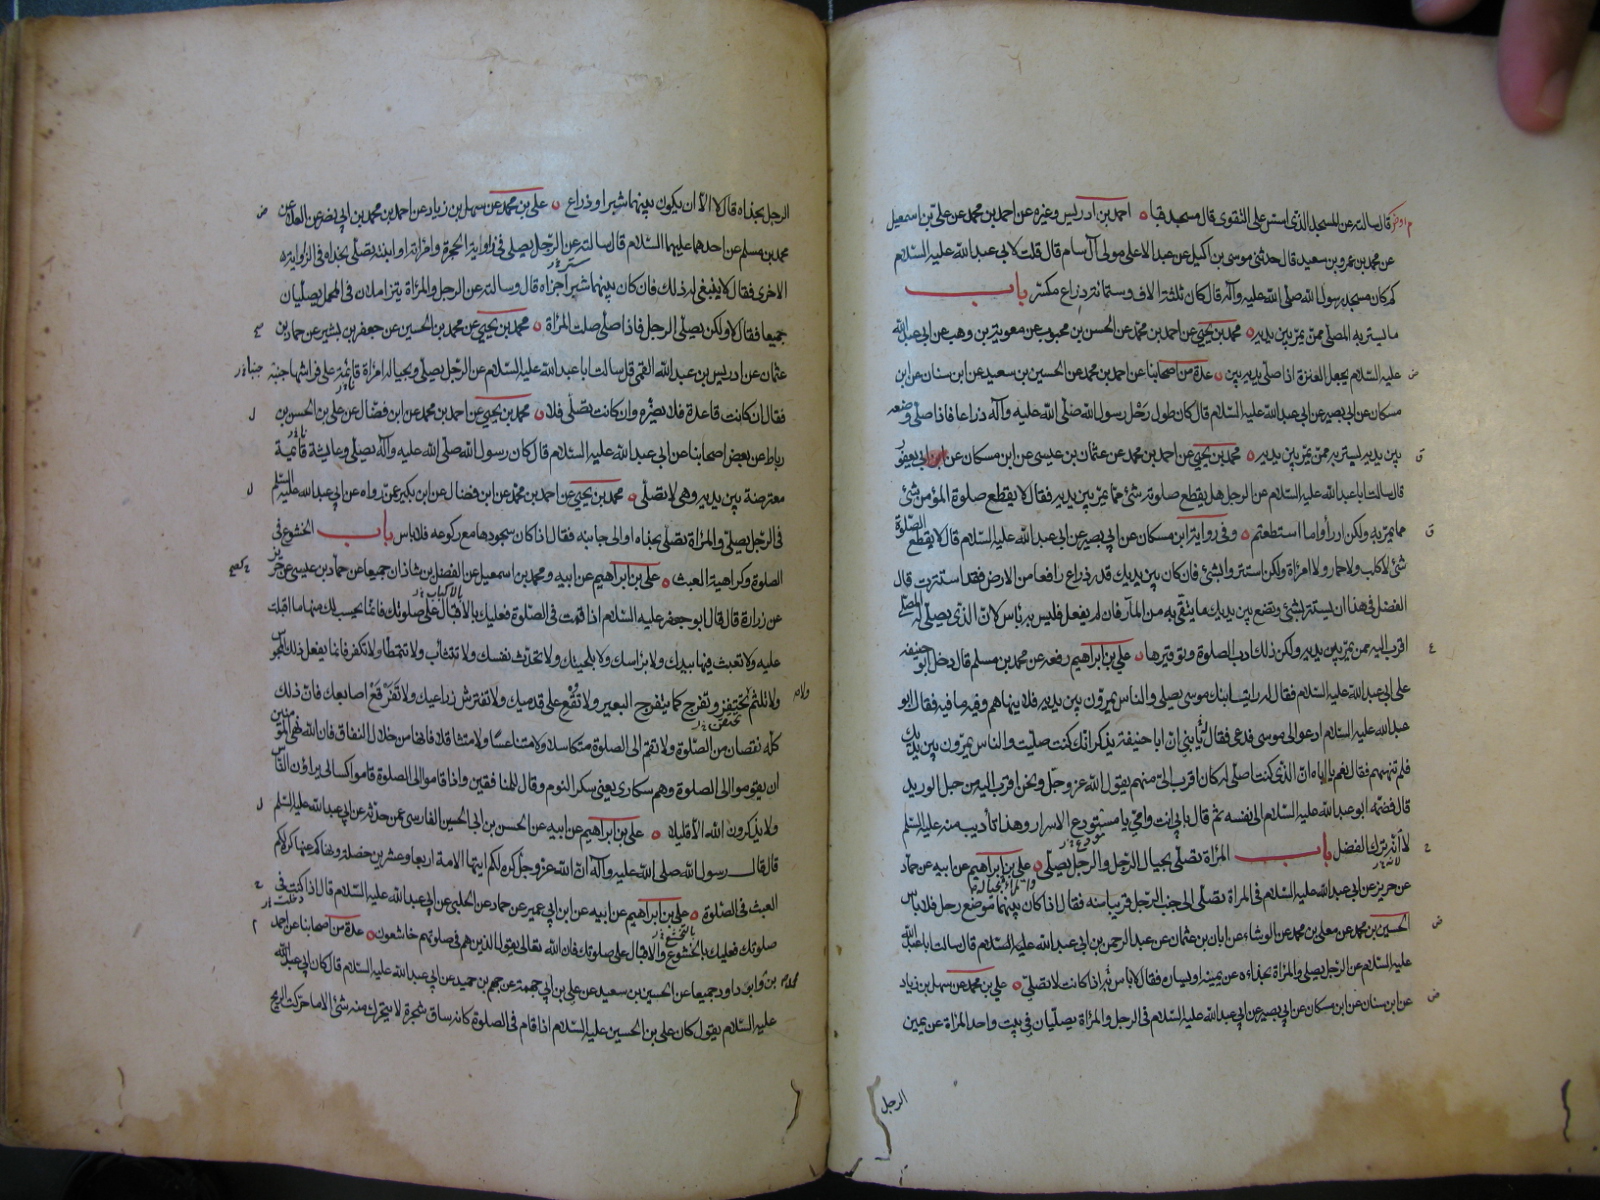 قال سالته عن المسجد الذى اسس على التقوى قال مسجد قبا احمد بن ادريس وغيره عن احمد بن محمد عن على بن اسمعيل
عن محمد بن عمرو بن سعيد قال حدثنى موسى بن اكيل عن عبد الاعلى مولى آل سام قال قلت لابى عبد الله عليه السلام
كم كان مسجد رسول الله صلى الله عليه وآله قال كان ثلثة الاف وستمائة ذراع مكسر باب
ما يستتر به المصلى ممن يمر بين يديه محمد بن يحيى عن احمد بن محمد عن الحسن بن محبوب عن معوية بن وهب عن ابى عبد الله
عليه السلام يجعل العنزة اذا صلى بين يديه عدة من اصحابنا عن احمد بن محمد عن الحسين بن سعيد عن ابن سنان عن ابن
مسكان عن ابى بصير عن ابى عبد الله عليه السلام قال كان طول رحل رسول الله صلى الله عليه وآله ذراعا فاذا صلى وضعه
بين يديه يستتر به ممن يمر بين يديه محمد بن يحيى عن احمد بن محمد عن عثمان بن عيسى عن ابن مسكان عن ابن ابى يعفور
قال سالت ابا عبد الله عليه السلام عن الرجل هل يقطع صلوته شئ مما يمر بين يديه فقال لا يقطع صلوة المؤمن شئ
ولكن ادرأوا ما استطعتم وفى رواية ابن مسكان عن ابى بصير عن ابى عبد الله عليه السلام قال لا يقطع الصلوة
شئ لا كلب ولا حمار ولا امراة ولكن استتروا بشئ فان كان بين يديك قدر ذراع رافعا من الارض فقد استترت قال
الفضل فى هذا ان يستتر بشئ ويضع بين يديه ما يتقى به من المار فان لم يفعل فليس به باس لان الذى يصلى له المصلى
اقرب اليه ممن يمر بين يديه ولكن ذلك ادب الصلوة وتوقيرها على بن ابراهيم رفعه عن محمد بن مسلم قال دخل ابو حنيفه
على ابى عبد الله عليه السلام فقال له رايت ابنك موسى يصلى والناس يمرون بين يديه فلا ينهاهم وفيه ما فيه فقال ابو
عبد الله عليه السلام ادعوا لى موسى فدعى فقال له يا بنى ان ابا حنيفة يذكر انك كنت صليت والناس يمرون بين يديك
فلم تنههم فقال نعم يا اباه ان الذى كنت اصلى له كان اقرب الى منهم يقول الله عز وجل ونحن اقرب اليه من حبل الوريد
قال فضمه ابو عبد الله عليه السلام الى نفسه ثم قال بابى انت وامى يا مستودع الاسرار وهذا تأديب منه عليه السلم
لا انه ترك الفضل باب المراة تصلى بحيال الرجل والرجل يصلى على بن ابراهيم عن ابيه عن حماد
عن حريز عن ابى عبد الله عليه السلام فى المراة تصلى الى جنب الرجل قريبا منه فقال اذا كان بينهما موضع رجل فلا باس
الحسين بن محمد عن معلى بن محمد عن الوشاء عن ابان بن عثمان عن عبد الرحمن بن ابى عبد الله عليه السلام قال سالت ابا عبد الله
عليه السلام عن الرجل يصلى والمراة بحذاءه عن يمينه او يساره فقال لا باس به اذا كانت لا تصلى على بن محمد عن سهل بن زياد
عن ابن سنان عن ابن مسكان عن ابى بصير عن ابى عبد الله عليه السلام فى الرجل والمراة يصليان فى بيت واحد المراة عن يمين
الرجل
الرجل بحذاه قال لا الا ان يكون بينهما شبر او ذراع على بن محمد عن سهل بن زياد عن احمد بن محمد بن ابى نصر عن العلا عن
محمد بن مسلم عن احدهما عليهما السلام قال سالته عن الرجل يصلى فى زاوية الحجرة وامراته او ابنته تصلى بحذاه فى الزاوية
الاخرى فقال لا ينبغى له ذلك فان كان بينهما شبر اجزاه قال وسالته عن الرجل والمراة يتزاملان فى المحمل يصليان
جميعا فقال لا ولكن يصلى الرجل فاذا صلى صلت المراة محمد بن يحيى عن محمد بن الحسين عن جعفر بن بشير عن حماد بن
عثمان عن ادريس بن عبد الله القمى قال سالت ابا عبد الله عليه السلام عن الرجل يصلى وبحياله امراة قائمة على فراشها جنبه
فقال ان كانت قاعدة فلا يضره وان كانت تصلى فلا محمد بن يحيى عن احمد بن محمد عن ابن فضال عن على بن الحسن بن
رباط عن بعض اصحابنا عن ابى عبد الله عليه السلام قال كان رسول الله صلى الله عليه وآله يصلى وعايشة قائمة
معترضة بين يديه وهى لا تصلى محمد بن يحيى عن احمد بن محمد عن ابن فضال عن ابن بكير عمن رواه عن ابى عبد الله عليه السلم
فى الرجل يصلى والمراة تصلى بحذاه او الى جانبه فقال اذا كان سجودها مع ركوعه فلا باس باب الخشوع فى
الصلوة وكراهية العبث على بن ابراهيم عن ابيه ومحمد بن اسمعيل عن الفضل بن شاذان جميعا عن حماد بن عيسى عن حريز
عن زرارة قال قال ابو جعفر عليه السلام اذا قمت فى الصلوة فعليك بالاقبال على صلوتك فانما يحسب لك منها ما اقبلت
عليه ولا تعبث فيها بيدك ولا براسك ولا بلحيتك ولا تحدث نفسك ولا تتثائب ولا تتمطا ولا تكفر فانما يفعل ذلك المجوس
ولا تلثم ولا تحتفز وتفرج كما يتفرج البعير ولا تقع على قدميك ولا تفترش ذراعيك ولا تفرقع اصابعك فان ذلك
كله نقصان من الصلوة ولا تقم الى الصلوة متكاسلا ولا متناعسا ولا متثاقلا فانها من خلال النفاق فان الله نهى المؤمنين
ان يقوموا الى الصلوة وهم سكارى يعنى سكر النوم وقال للمنافقين واذا قاموا الى الصلوة قاموا كسالى يراؤن الناس
ولا يذكرون الله الا قليلا على بن ابراهيم عن ابيه عن الحسن بن ابى الحسين الفارسى عمن حدثه عن ابى عبد الله عليه السلم
قال قال رسول الله صلى الله عليه وآله ان الله عز وجل كره لكم ايتها الامة اربعا وعشرين خصلة ونهاكم عنها كره لكم
العبث فى الصلوة على بن ابراهيم عن ابيه عن ابن ابى عمير عن حماد عن الحلبى عن ابى عبد الله عليه السلام قال اذا كنت فى
صلوتك فعليك بالخشوع والاقبال على صلوتك فان الله تعالى يقول الذين هم فى صلوتهم خاشعون عدة من اصحابنا عن احمد
بن محمد وابى داود جميعا عن الحسين بن سعيد عن على بن ابى جهمة عن جهم بن حميد عن ابى عبد الله عليه السلام قال كان ابى عبد الله
عليه السلام يقول كان على بن الحسين عليه السلام اذا قام فى الصلوة كانه ساق شجرة لا يتحرك منه شئ الا ما حركت الريح